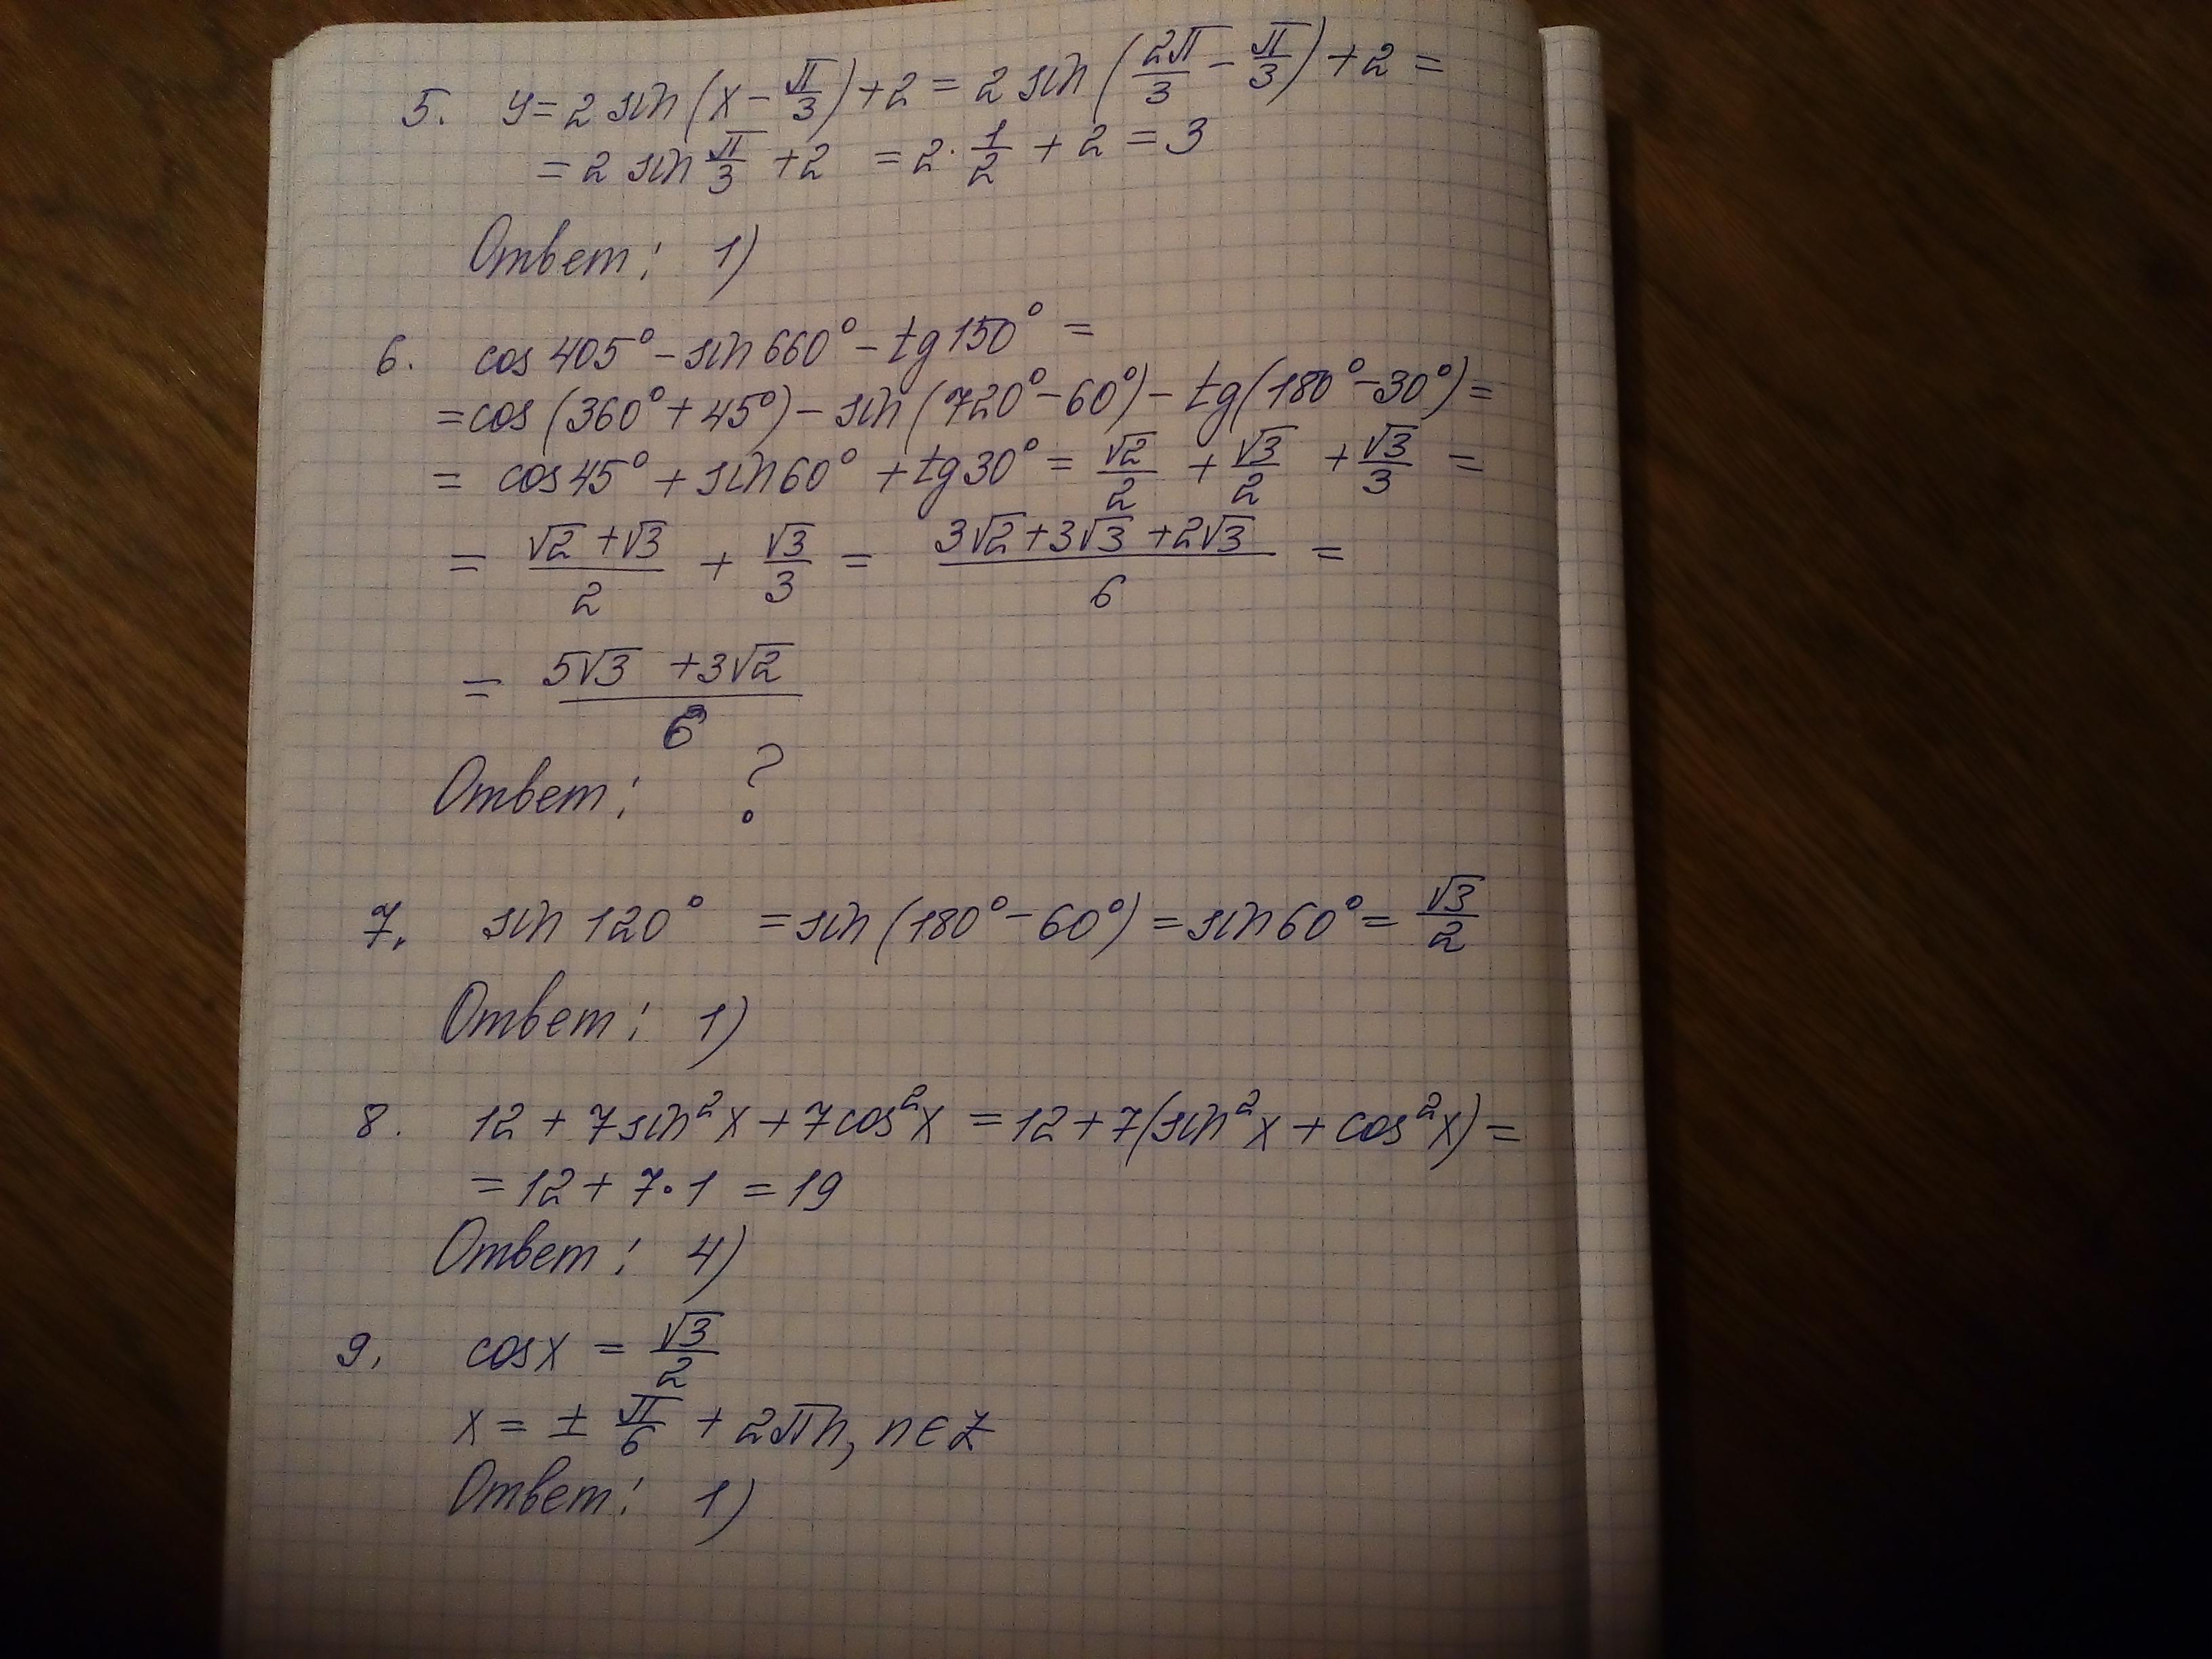 5. y = 2 sin (x - π/3) + 2 = 2 sin (2π/3 - π/3) + 2 =
= 2 sin π/3 + 2 = 2 · 1/2 + 2 = 3
Ответ: 1)
6. cos 405° - sin 660° - tg 150° =
= cos (360° + 45°) - sin (720° - 60°) - tg (180° - 30°) =
= cos 45° + sin 60° + tg 30° = √2/2 + √3/2 + √3/3 =
= (√2 + √3)/2 + √3/3 = (3√2 + 3√3 + 2√3)/6 =
= (5√3 + 3√2)/6
Ответ: ?
7. sin 120° = sin (180° - 60°) = sin 60° = √3/2
Ответ: 1)
8. 12 + 7 sin² x + 7 cos² x = 12 + 7 (sin² x + cos² x) =
= 12 + 7 · 1 = 19
Ответ: 4)
9. cos x = √3/2
x = ± π/6 + 2πn, n ∈ Z
Ответ: 1)